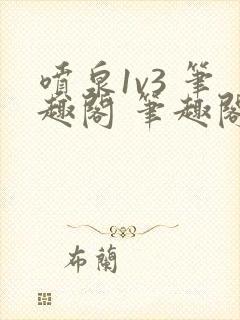 噴泉1v3 筆
趣閣 筆趣閣
布蘭